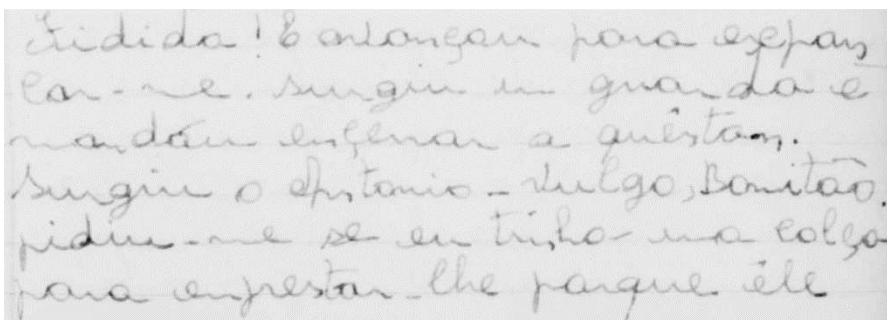 Fidida! E avançam para espan
car-me. Surgiu um guarda e
mandou encerrar a questão.
Surgiu o Antonio - Vulgo, Bonitão.
pidiu-me se eu tinha uma calça
para emprestar-lhe parque êle